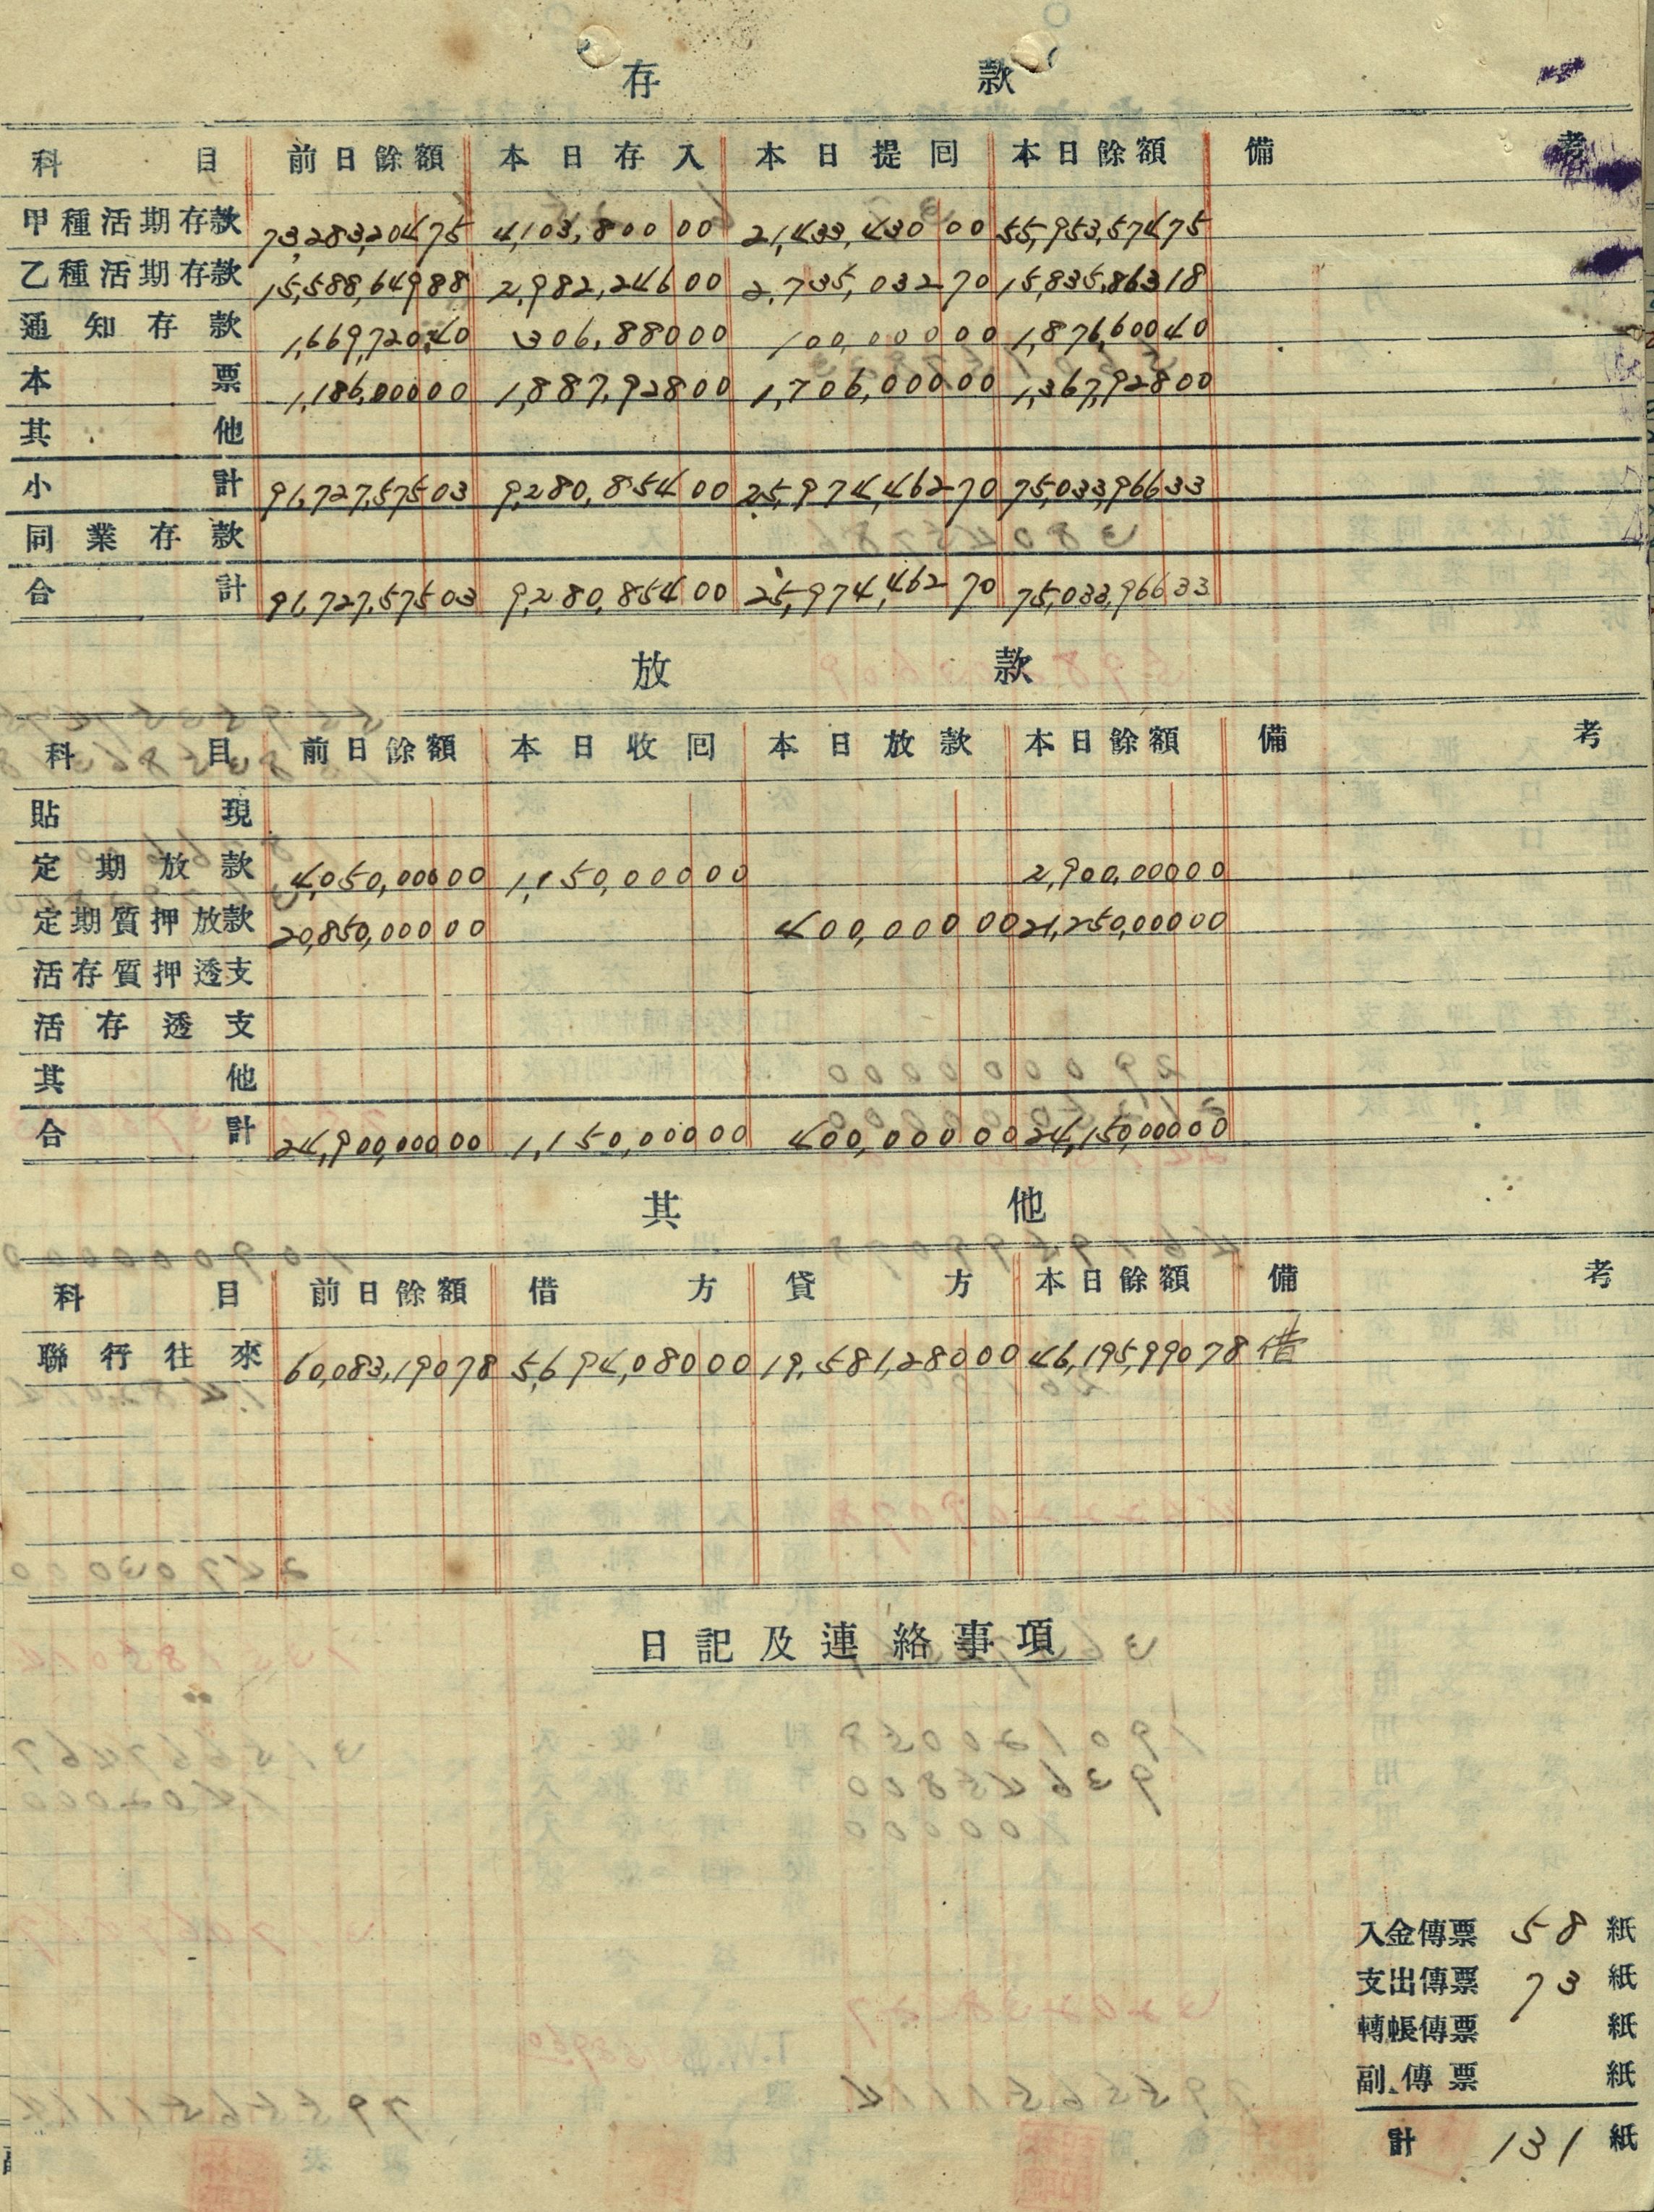 存款
科目 前日餘額 本日存入 本日提回 本日餘額 備考
甲種活期存款 73,283,204 75 4,103,800 00 21,433,430 00 55,953,574 75
乙種活期存款 15,588,649 88 2,982,246 00 2,735,032 70 15,835,863 18
通知存款 1,669,720 40 306,880 00 100,000 00 1,876,600 40
本票 1,186,000 00 1,887,928 00 1,706,000 00 1,367,928 00
其他
小計 91,727,575 03 9,280,854 00 25,974,462 70 75,033,966 33
同業存款
合計 91,727,575 03 9,280,854 00 25,974,462 70 75,033,966 33
放款
科目 前日餘額 本日收回 本日放款 本日餘額 備考
貼現
定期放款 4,050,000 00 1,150,000 00 2,900,000 00
定期質押放款 20,850,000 00 400,000 00 21,250,000 00
活存質押透支
活存透支
其他
合計 24,900,000 00 1,150,000 00 400,000 00 24,150,000 00
其他
科目 前日餘額 借方 貸方 本日餘額 備考
聯行往來 60,083,190 78 5,694,080 00 19,581,280 00 46,195,990 78 借
日記及連絡事項
入金傳票 58 紙
支出傳票 73 紙
轉帳傳票 紙
副傳票 紙
計 131 紙